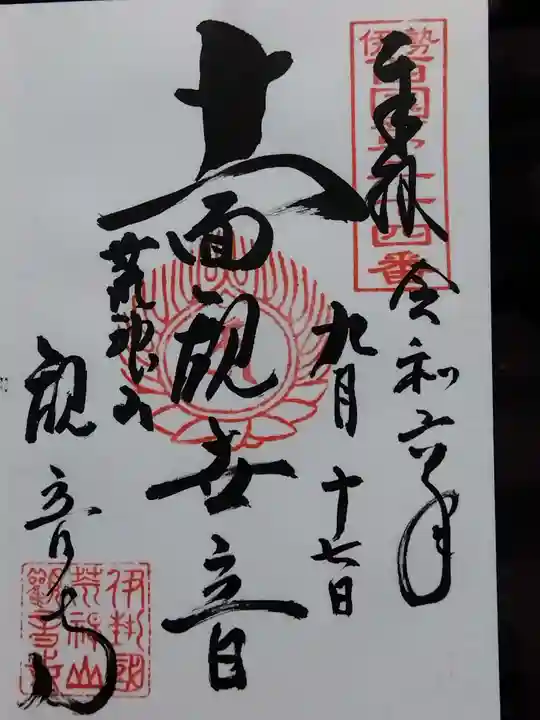 奉拝
令和六年
九月十七日
十一面観世音
荒神山
観音寺
伊勢
西國第二十四番
伊勢國
荒神山
観音寺